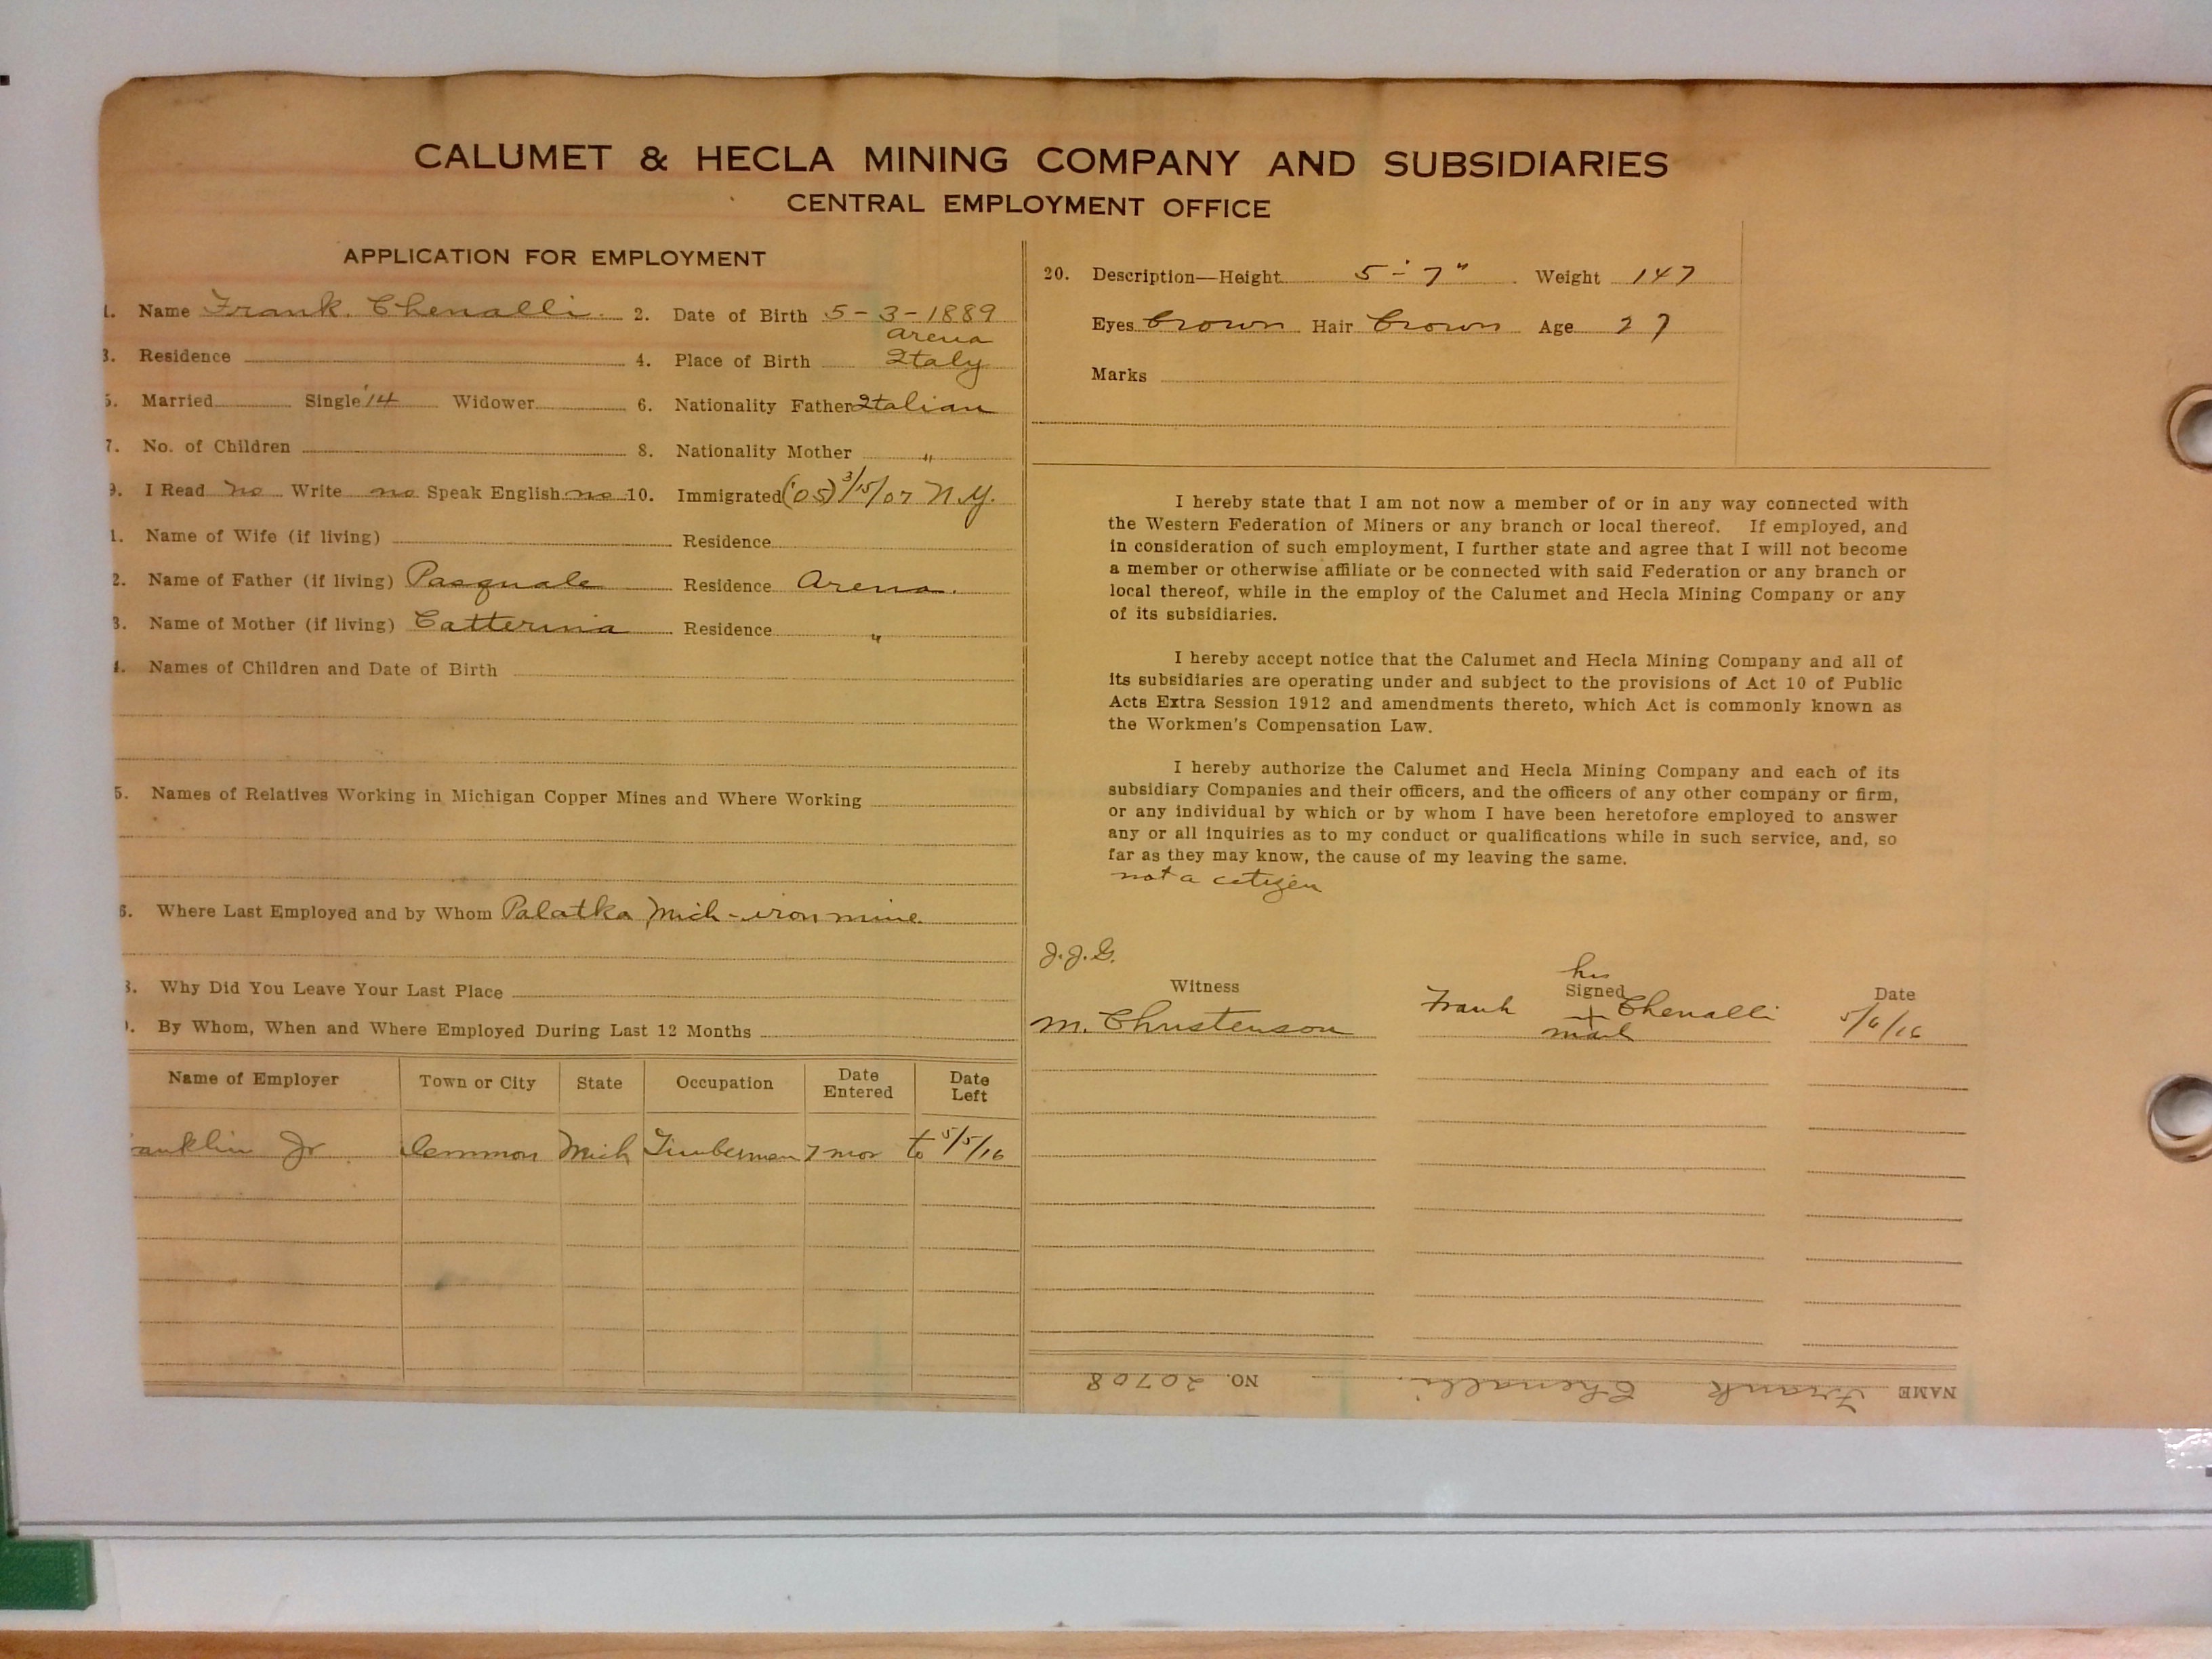 CALUMET & HECLA MINING COMPANY AND SUBSIDIARIES
CENTRAL EMPLOYMENT OFFICE
APPLICATION FOR EMPLOYMENT
1. Name Frank. Chenalli. 2. Date of Birth 5-3-1889
3. Residence 4. Place of Birth Arena Italy
5. Married Single '14 Widower 6. Nationality Father Italian
7. No. of Children 8. Nationality Mother "
9. I Read no Write no Speak English no 10. Immigrated ('05) 3/15/07 N.Y.
1. Name of Wife (if living) Residence
2. Name of Father (if living) Pasquale Residence Arena.
3. Name of Mother (if living) Catterina Residence "
4. Names of Children and Date of Birth
5. Names of Relatives Working in Michigan Copper Mines and Where Working
6. Where Last Employed and by Whom Palatka Mich - iron mine
8. Why Did You Leave Your Last Place
9. By Whom, When and Where Employed During Last 12 Months
Name of Employer Town or City State Occupation Date Entered Date Left
anklin Jr Demmon Mich Timberman 7 mos to 5/5/16
20. Description—Height 5-7" Weight 147
Eyes brown Hair brown Age 27
Marks
I hereby state that I am not now a member of or in any way connected with
the Western Federation of Miners or any branch or local thereof. If employed, and
in consideration of such employment, I further state and agree that I will not become
a member or otherwise affiliate or be connected with said Federation or any branch or
local thereof, while in the employ of the Calumet and Hecla Mining Company or any
of its subsidiaries.
I hereby accept notice that the Calumet and Hecla Mining Company and all of
its subsidiaries are operating under and subject to the provisions of Act 10 of Public
Acts Extra Session 1912 and amendments thereto, which Act is commonly known as
the Workmen's Compensation Law.
I hereby authorize the Calumet and Hecla Mining Company and each of its
subsidiary Companies and their officers, and the officers of any other company or firm,
or any individual by which or by whom I have been heretofore employed to answer
any or all inquiries as to my conduct or qualifications while in such service, and, so
far as they may know, the cause of my leaving the same.
not a citizen
J.J.G.
Witness Signed Date
M. Christenson Frank his + mark Chenalli 5/6/16
NAME Frank Chenalli. NO. 20708